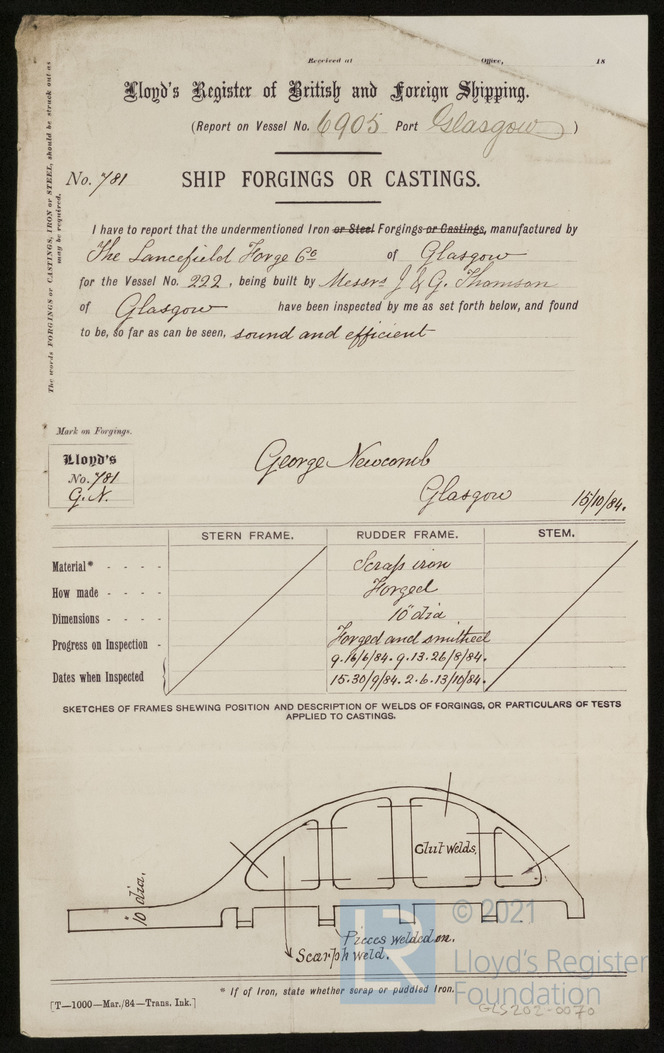 Received at Office, 18
Lloyd's Register of British and Foreign Shipping.
(Report on Vessel No. 6905 Port Glasgow)
No. 781 SHIP FORGINGS OR CASTINGS.
The words FORGINGS or CASTINGS, IRON or STEEL, should be struck out as
may be required.
I have to report that the undermentioned Iron or Steel Forgings or Castings, manufactured by
The Lancefield Forge Co of Glasgow
for the Vessel No. 222, being built by Messrs J & G. Thomson
of Glasgow have been inspected by me as set forth below, and found
to be, so far as can be seen, sound and efficient
Mark on Forgings.
Lloyd's
No. 781
G.N.
George Newcomb
Glasgow 15/10/84.
STERN FRAME. RUDDER FRAME. STEM.
Material* - - - - Scrap iron
How made - - - - Forged
Dimensions - - - - 10" dia
Progress on Inspection - Forged and smithed
9.16/6/84. 9.13.26/8/84.
Dates when Inspected 15.30/9/84. 2.6.13/10/84.
SKETCHES OF FRAMES SHEWING POSITION AND DESCRIPTION OF WELDS OF FORGINGS, OR PARTICULARS OF TESTS
APPLIED TO CASTINGS.
Glut welds.
10" dia.
Pieces welded on.
Scarph weld.
* If of Iron, state whether scrap or puddled Iron.
[T—1000—Mar./84—Trans. Ink.]
LR
© 2021
Lloyd's Register
Foundation
GLS202-0070